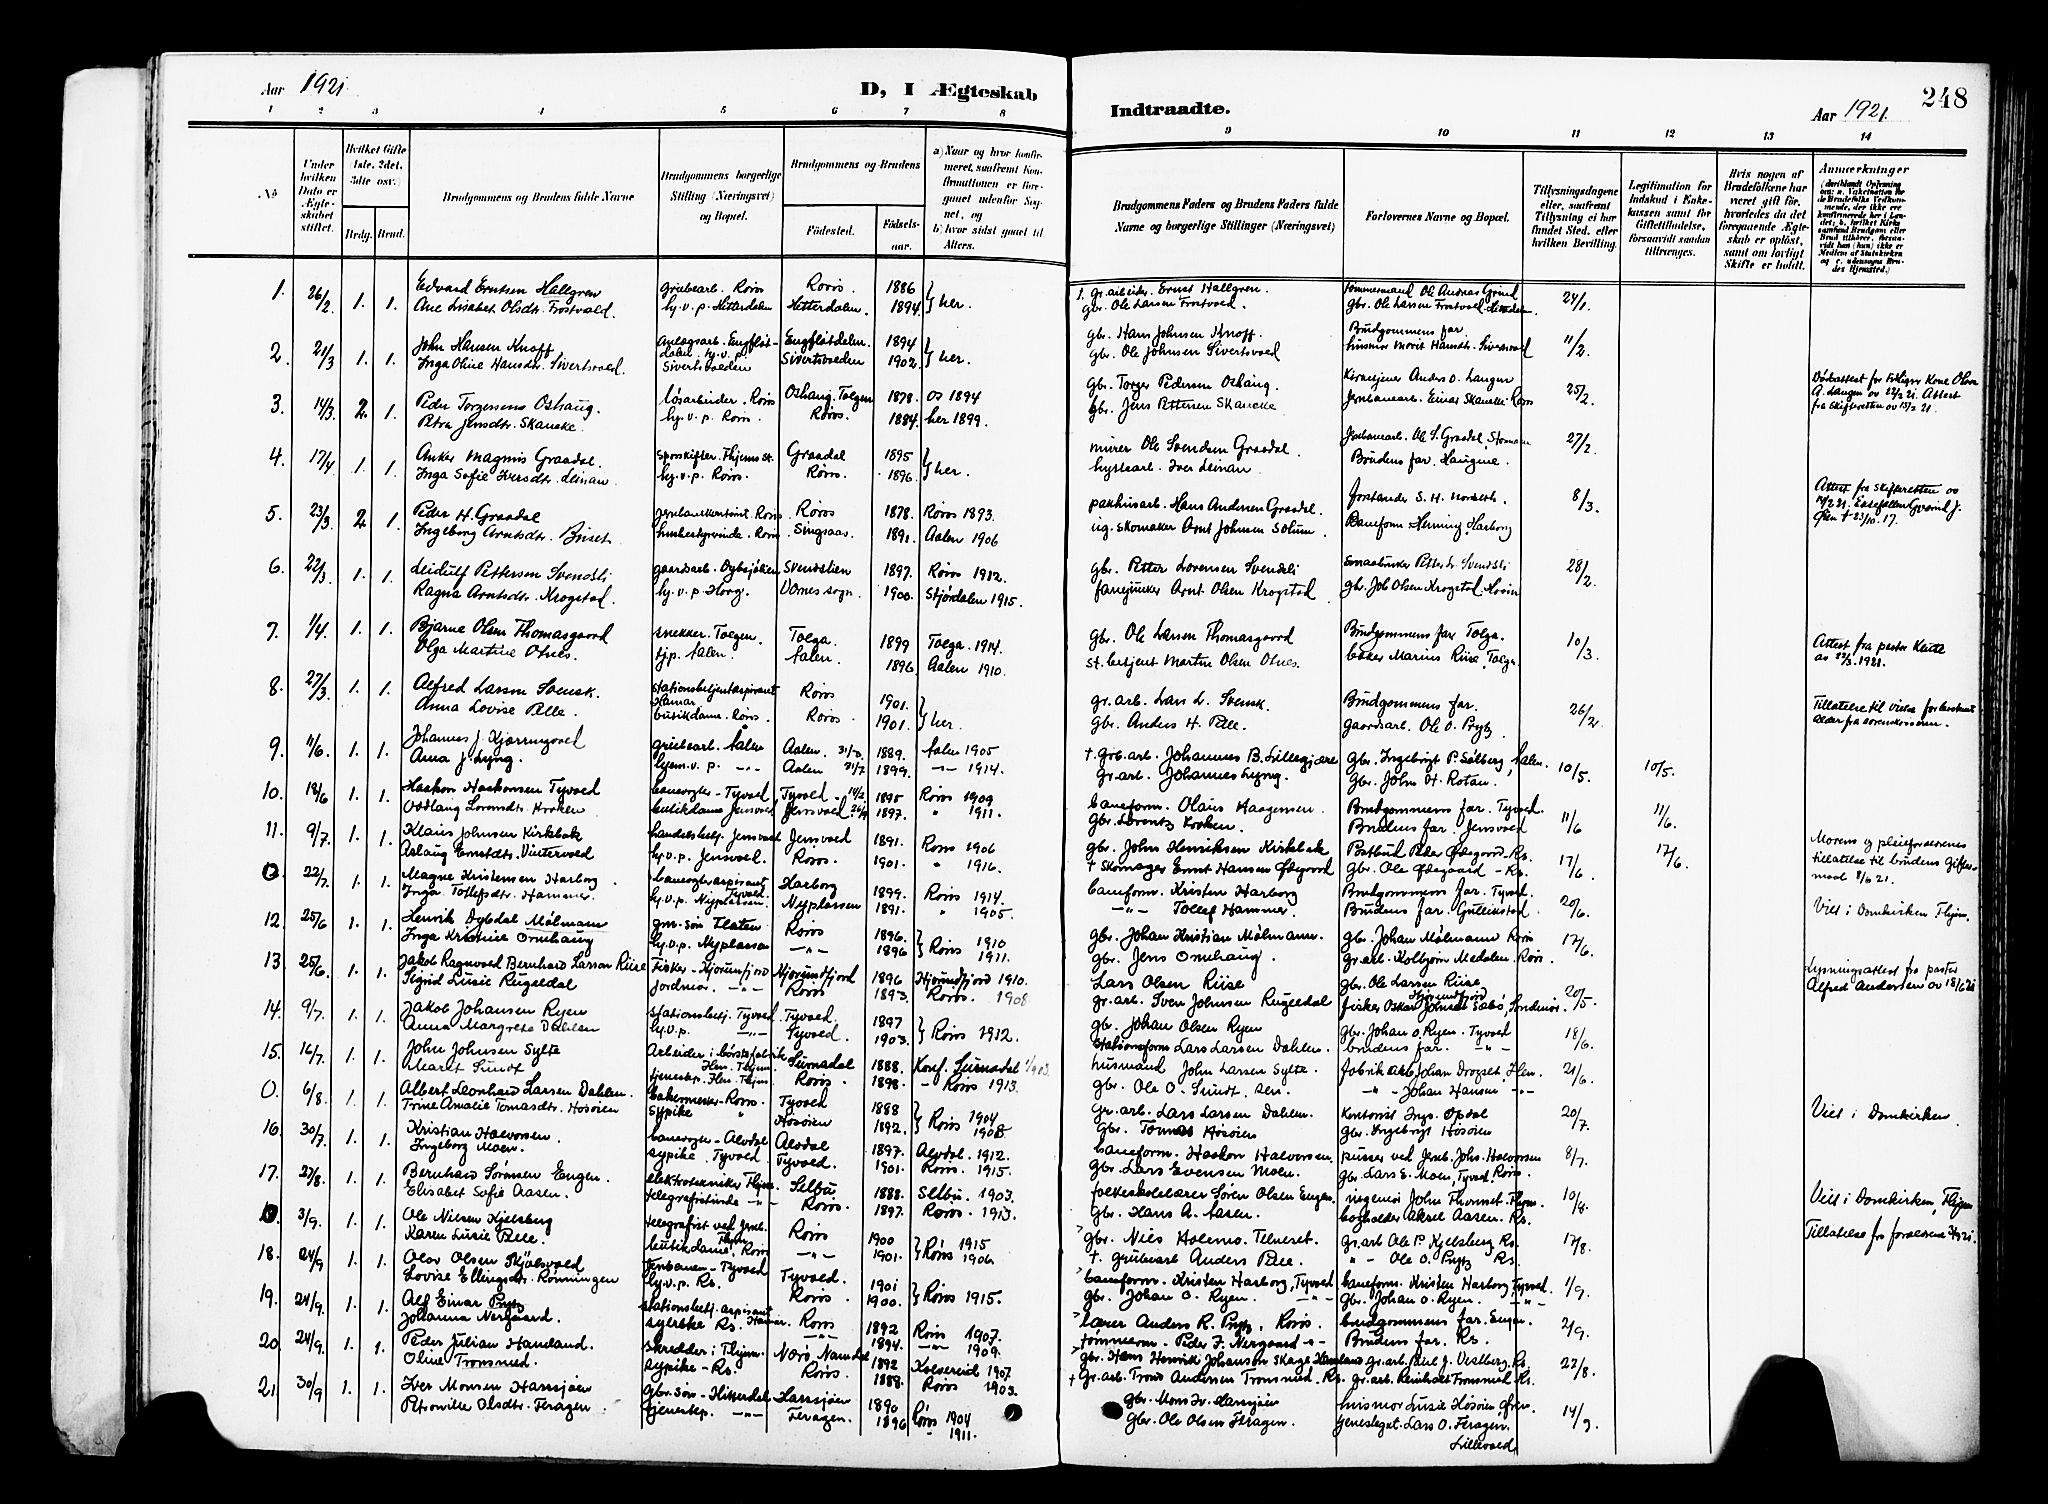 Aar 1921. D, I Ægteskab
Indtraadte. Aar 1921. 248
1 2 3 4 5 6 7 8
9 10 11 12 13 14
No
Under hvilken Dato er Ægteskabet stiftet.
Hvilket Gifte 1ste, 2det, 3die osv.)
Brdg. Brud.
Brudgommens og Brudens fulde Navne
Brudgommens borgerlige Stilling (Næringsvei) og Bopæl.
Brudgommens og Brudens
Fødested. Fødselsaar.
a) Naar og hvor konfirmeret, saafremt Konfirmationen er foregaaet udenfor Sognet, og
b) hvor sidst gaaet til Alters.
Brudgommens Faders og Brudens Faders fulde Navne og borgerlige Stillinger (Næringsvei)
Forlovernes Navne og Bopæl.
Tillysningsdagene eller, saafremt Tillysning ei har fundet Sted, efter hvilken Bevilling.
Legitimation for Indskud i Enkekassen samt for Giftetilladelse, forsaavidt saadan tiltrænges.
Hvis nogen af Brudefolkene har været gift før, hvorledes da det foregaaende Ægteskab er opløst, samt om lovligt Skifte er holdt.
Anmærkninger
1. 26/2 1. 1. Edvard Erntsen Hallgren grubearb. Røros Røros. 1886 } her. 1. gr. arbeider. Ernst Hallgren. Tømmermand Ole Andreas Grind 24/1
Ane Lisabet Olsdtr. Frostvold. hj.v.p. Hitterdalen Hitterdalen. 1894. gbr. Ole Larsen Frostvold. gbr. Ole Larsen Frostvold.
2. 21/3 1. 1. John Hansen Knoff anlægsarb. Engfløtdalen. hj.v.p. Sivertsvolden Engfløtdalen. 1894 } her. gbr. Hans Johnsen Knoff. Brudgommens far. 11/2
Inga Oline Hansdtr. Sivertsvold. Sivertsvolden 1902. gbr. Ole Johnsen Sivertsvold husmor Marit Hansdtr. Sivertsvold
3. 14/3 2. 1. Peder Torgersens Oshaug. løsarbeider. Røros Oshaug. Tolgen 1878. os 1894 gbr. Torger Pedersen Oshaug. Kirketjener Anders O. Langen 25/2
Petra Jensdtr. Skancke. hj.v.p. Røros. Røros. 1884. her 1899. gbr. Jens Pettersen Skancke Jernbanearb. Einar Skancke Røros
A. Langen ov 22/2 21. Attest fra Skifteretten ov 15/2 21.
4. 17/4 1. 1. Anker Magnus Graadal. sporskifter. Thjems st. Graadal 1895 } her. murer Ole Svendsen Graadal. Jernbanearb. Ole S. Graadal, 27/2
Inga Sofie Iversdtr. Leinan. hj.v.p. Røros. Røros. 1896. hyttearb. Iver Leinan. Brudens far.
5. 23/3 2. 1. Peder H. Graadal Røros 1878. Røros 1893. pakhusarb. Hans Andersen Graadal. forstander S. H. 8/3
Ingeborg Arntsdtr. husbestyrerinde. Røros Singsaas. 1891. Aalen 1906 skomaker Arnt Johnsen Solum. Baneform. Henning Harborg
Attest fra Skifteretten ov
6. 22/3 1. 1. Leidulf Pettersen Svendsli gaardsarb. Dybsjølien Svendslien 1897. Røros 1912. gbr. Petter Lorensen Svendsli Petter L. Svendsli 28/2
Ragna Arntsdtr. Krogstad. hj.v.p. Horg. sogn. 1900. Stjørdalen 1915. fanejunker Arnt Olsen Krogstad gbr. Joh Olsen Krogstad. Hovin
7. 1/4 1. 1. Bjarne Olsen Thomasgaard snekker. Tolgen. Tolga. 1899 Tolga. 1914. gbr. Ole Larsen Thomasgaard Brudgommens far Tolga. 10/3
Olga Martine Otnes. tjp. Aalen. Aalen. 1896 Aalen 1910. st. betjent Martin Olsen Otnes. baker Marius Riise, Tolga
Attest fra pastor av 22/3. 1921.
8. 27/3 1. 1. Alfred Larsen Svensk. stationsbetjentaspirant Hamar Røros 1901. } her. gr. arb. Lars L. Svensk Brudgommens far. 26/2
Anna Lovise Pelle. butikdame. Røros. Røros. 1901. gbr. Anders H. Pelle. gaardsarb. Ole O. Prytz
Tillatelse til vielse for
9. 11/6 1. 1. Johannes J. Kjæringvold grubearb. Aalen Aalen. 1889. Aalen 1905 † grb.arb. Johannes B. Lillegjære gbr. Ingebrigt P. Solberg, Aalen. 10/5. 10/5.
Anna J. Lyng. hjem.v.p. -"- Aalen 1899. -"- 1914. gr.arb. Johannes Lyng. gbr. John H. Rotan.
10. 18/6 1. 1. Haakon Haakonsen Tyvold banevogter - Tyvold Tyvold 1895 Røros 1909 baneform. Olaus Haagensen Brudgommens far. Tyvold. 11/6 11/6.
Oddlaug Lorentsdtr. Kroken butikdame Jensvold Jensvold 1897. " 1911. gbr. Lorentz Kroken. Brudens far. Jensvold
11. 9/7 1. 1. Klaus Johnsen Kirkbak handelsbetj. Jensvold Jensvold 1891. Røros 1906 gbr. John Henriksen Kirkbak Postbud Peder Ødegaard - Rs. 17/6 17/6.
Aslaug Ernstdtr. Vintervold hj.v.p. Jensvold. Røros. 1901. " 1916. † Skomager Ernst Hansen Ødegaard gbr. Ole Ødegaard - Rs.
Morens og pleieforældrenes tillatelse til brudens giftermaal 8/6 21.
0 22/7 1. 1. Magne Kristensen Harborg banevogteraspirant Tyvold Harborg 1899. Røros 1914. baneform. Kristen Harborg Brudgommens far. Tyvold. 20/6.
Inga Tollefsdtr. Hammer. hj.v.p. Nyplassen Nyplassen 1891. " 1905. -"- Tollef Hammer. Brudens far. Gullikstad
Viet i Domkirken Thjem.
12. 25/6 1. 1. Henrik Dybdal Mølmann gm. søn Flaten Røros 1896. } Røros 1910 gbr. Johan Kristian Mølmann. gbr. Johan Mølmann Røros 17/6.
Inga Kristine Ornhaug hj.v.p. Nyplassen -"- 1896 1911. gbr. Jens Ornhaug. gr.arb. Kolbjørn Medalen. Røros.
13 25/6. 1. 1. Jakob Ragnvald Bernhard Larsen Riise Fisker - Hjørundfjord Hjørundfjord 1896 Hjørundfjord 1910. Lars Olsen Riise gbr. Ole Larsen Riise Hjørundfjord 20/5
Sigrid Lusie Rugeldal jordmor. -"- Røros 1893. Røros. 1908 gr.arb. Sven Johnsen Rugeldal fisker Oskar Johnsen Sæbø,
Lysningsattest fra pastor Alfred Andersen ov 18/6 21
14. 9/7. 1. 1. Jakob Johansen Ryen stationsbetj. Tyvold Tyvold. 1897 } Røros 1912. gbr. Johan Olsen Ryen gbr. Johan O. Ryen. Tyvold 18/6.
Anna Margrete Dahlen hj.v.p. -"- Tyvold. 1903. Stationsform Lars Larsen Dahlen. brudens far. -"-
15. 16/7. 1. 1. John Johnsen Sylte Arbeider i børstefabrik Hen. Thjem Surnadal 1888. Konf. Surnadal 1/903. husmand John Larsen Sylte. fabrik arb. Johan Drogset, Hen. 21/6.
Marit Sundt tjenestep. Hen. Thjem Røros. 1898. - Røros 1913. gbr. Ole O. Sundt. sen. -"- Johan Hansen -"-
0. 6/8 1. 1. Albert Leonhard Larsen Dahlen. bakermester - Røros. Tyvold 1888 } Røros 1904 gr. arb. Lars Larsen Dahlen. Kontorist Ings. Opdal 20/7.
Trine Amalie Tomasdtr. Hosøien sypike " Hosøien 1892. 1908. gbr. Tomas Hosøien gbr. Ingebrigt Hosøien
Viet i Domkirken.
16. 30/7. 1. 1. Kristian Halvorsen. banevogter - Alvdal Alvdal 1897. Alvdal. 1912. baneform. Haakon Halvorsen. pusser ved Jernb. Johs. Halvorsen 8/7.
Ingeborg Moen. sypike. Tyvold. Tyvold. 1901. Røros. 1915. gbr. Lars Evensen Moen. gbr. Lars E. Moen, Tyvold, Røros.
17. 27/8. 1. 1. Bernhard Sørensen Engen. elektrotekniker Thjem. Selbu 1888. Selbu. 1903. folkeskolelærer Søren Olsen Engen. ingeniør John Thomset. Thjem. 10/8.
Elisabet Sofie Aasen. telegrafistinde -"- Røros. 1897. Røros. 1913. gbr. Hans A. Aasen. bogholder Aksel Aasen. Rs.
Viet i Domkirken, Thjem
0. 3/9. 1. 1. Ole Nilsen Kjelsberg telegrafist ved jernb. Thjem Røros 1900 } Røros 1915 gbr. Nils Holemo. Telneset. gr.arb Ole P. Kjelsberg Rs. 17/8.
Karen Lusie Pelle. butikdame, Røros -"- 1901. 1906. † grubearb Anders Pelle. " - Ole O. Prytz Rs.
Tillatelse fra forældrene
18. 24/9 1. 1. Olav Olsen Skjølsvold Jernbanen - Tyvold Tyvold. 1901 } Røros 1915. baneform. Kristen Harborg, Tyvold baneform. Kristen Harborg Tyvold. 1/9.
Lovise Ellingsdtr. Rønningen hj.v.p. Rs. Røros. 1900. gbr. Johan O. Ryen. -"- gbr. Johan O. Ryen. -"-
19. 24/9. 1. 1. Alf Einar Prytz stationsbetj. aspirant Hamar. Røros 1892 Røros 1907. lærer Anders R. Prytz, Røros. brudgommens far. Engen. 2/9.
Johanna Nergaard. syerske Rs. -"- 1894. -"- 1909. tømmerm. Peder J. Nergaard -"- Brudens far. Rs.
20. 24/9 1. 1. Peder Julian Hamland. skredder i Thjem. Nærø. Namdal 1892 Kolvereid 1907. gbr. Hans Henrik Johanson Skage Hamland gr.arb. Paul J. Vestberg. Rs. 22/8.
Oline Tronsmed. sypike - Rs. Røros. 1888. Røros 1903. † gr.arb. Trond Andersen Tronsmed. Rs. gr.arb. Reinholt Tronsmed Rs.
21. 30/9 1. 1. Iver Monsen Harsjøen gbr. søn - Hitterdal Harsjøen 1890 } Røros 1904 gbr. Mons Iv. Harsjøen husmor Lusie Hosøien, 14/9
Petronille Olsdtr. Feragen. tjenestep. -"- Feragen. 1896 1911. gbr. Ole Olsen Feragen. Lars O. Feragen. Lillevold